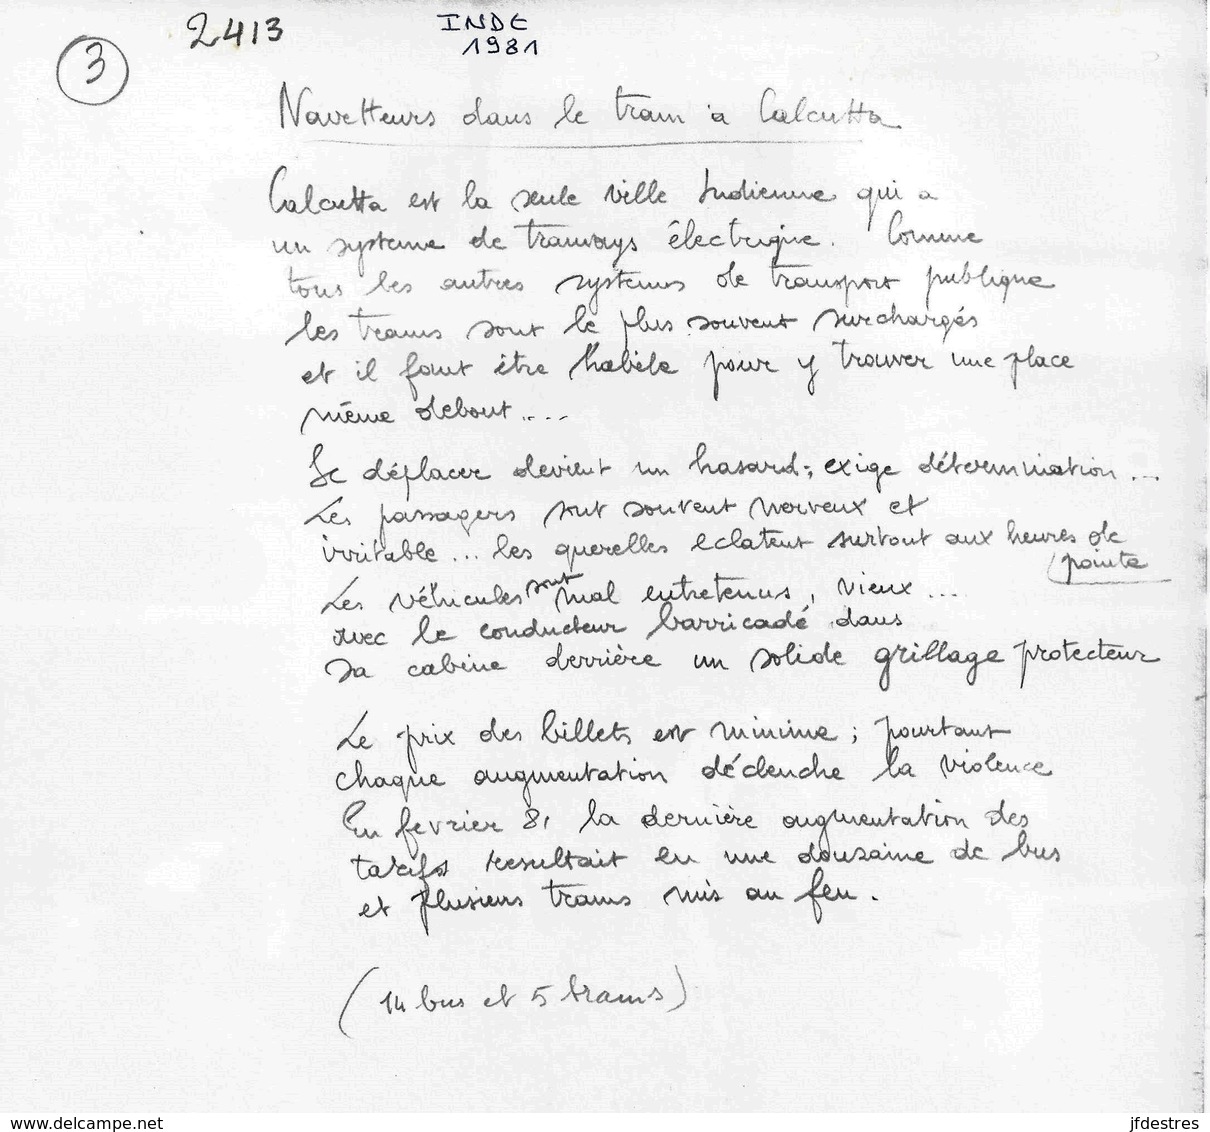 2413
INDE
1981
3
Navetteurs dans le tram à Calcutta
Calcutta est la seule ville Indienne qui a
un système de tramways électrique. Comme
tous les autres systemes de transport publique
les trams sont le plus souvent surchargés
et il faut être habile pour y trouver une place
même debout....
Se déplacer devient un hasard; exige détermination...
Les passagers sont souvent nerveux et
irritable... les querelles eclatent surtout aux heures de
pointe
Les véhicules sont mal entretenus, vieux...
avec le conducteur barricadé dans
sa cabine derrière un solide grillage protecteur
Le prix des billets est minime; pourtant
chaque augmentation déclenche la violence
En fevrier 81 la dernière augmentation des
tarifs resultait en une douzaine de bus
et plusieurs trams mis au feu.
(14 bus et 5 trams)
www.delcampe.net
jfdestres